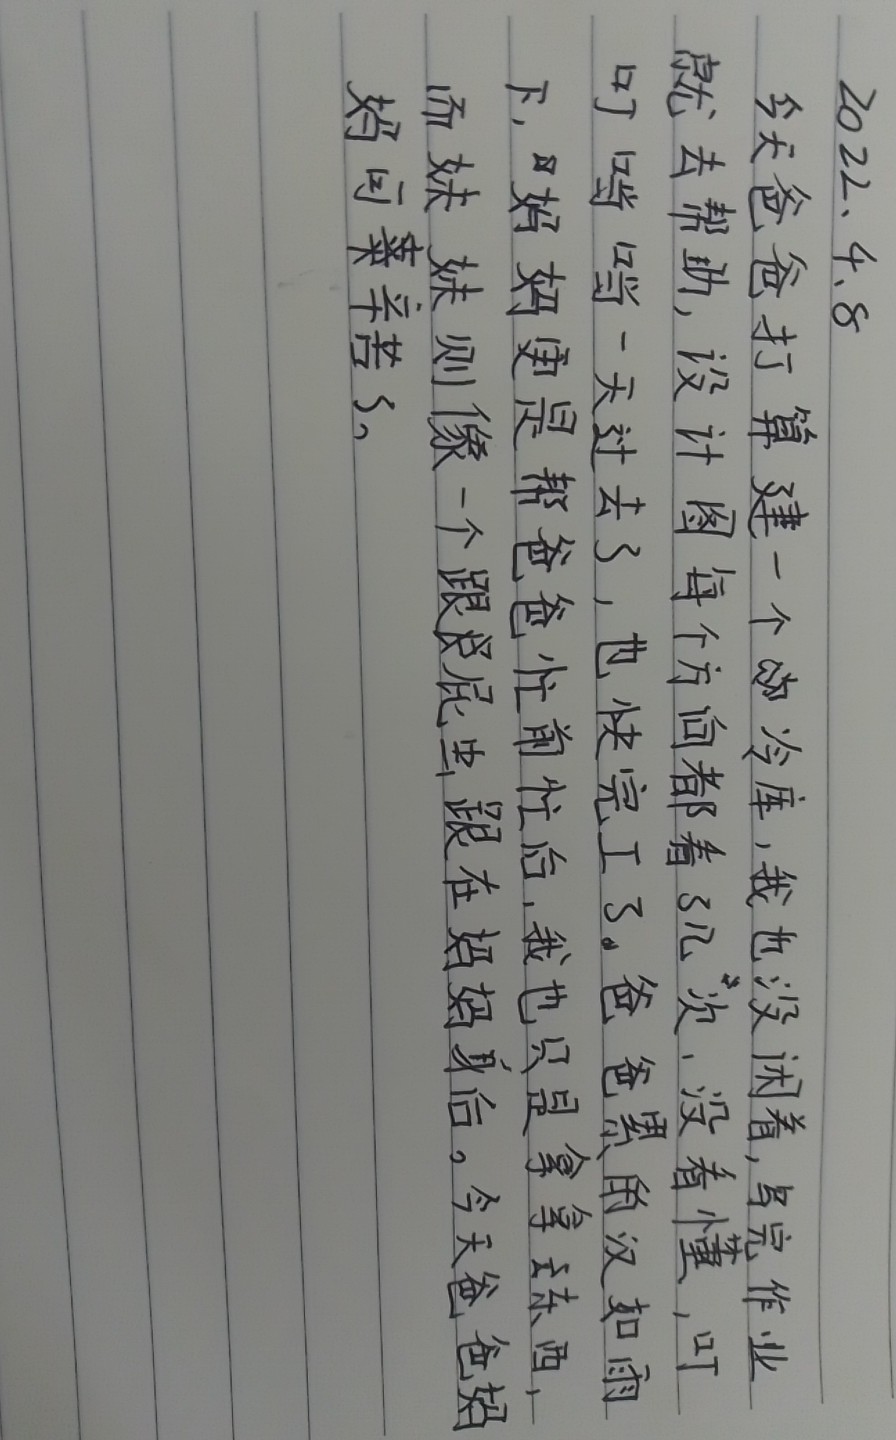 2022、4、8
今天爸爸打算建一个冷库,我也没闲着,写完作业
就去帮助,设计图每个方向都看了几次、没看懂,叮
叮当当一天过去了,也快完工了。爸爸累的汉如雨
下,妈妈更是帮爸爸忙前忙后,我也只是拿拿东西,
而妹妹则像一个跟屁虫跟在妈妈身后。今天爸爸妈
妈可莱辛苦了。